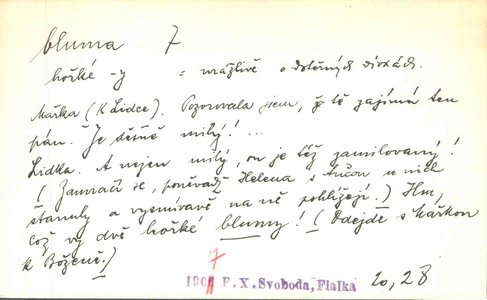 bluma 7
hořké -y = urážlivě o dotěrných dívkách.
Mařka (k Lidce). Pozorovala jsem, že tě zajímá ten
pán. Je děsně milý! ...
Lidka. A nejen milý, on je též zamilovaný!
(Zamračí se, poněvadž Helena s Ančou u nich
stanuly a vyzývavě na ně pohlížejí.) Hm,
což vy dvě hořké blumy! (Odejde s Mařkou
k Boženě.)
7
190 F. X. Svoboda, Fialka 20, 28